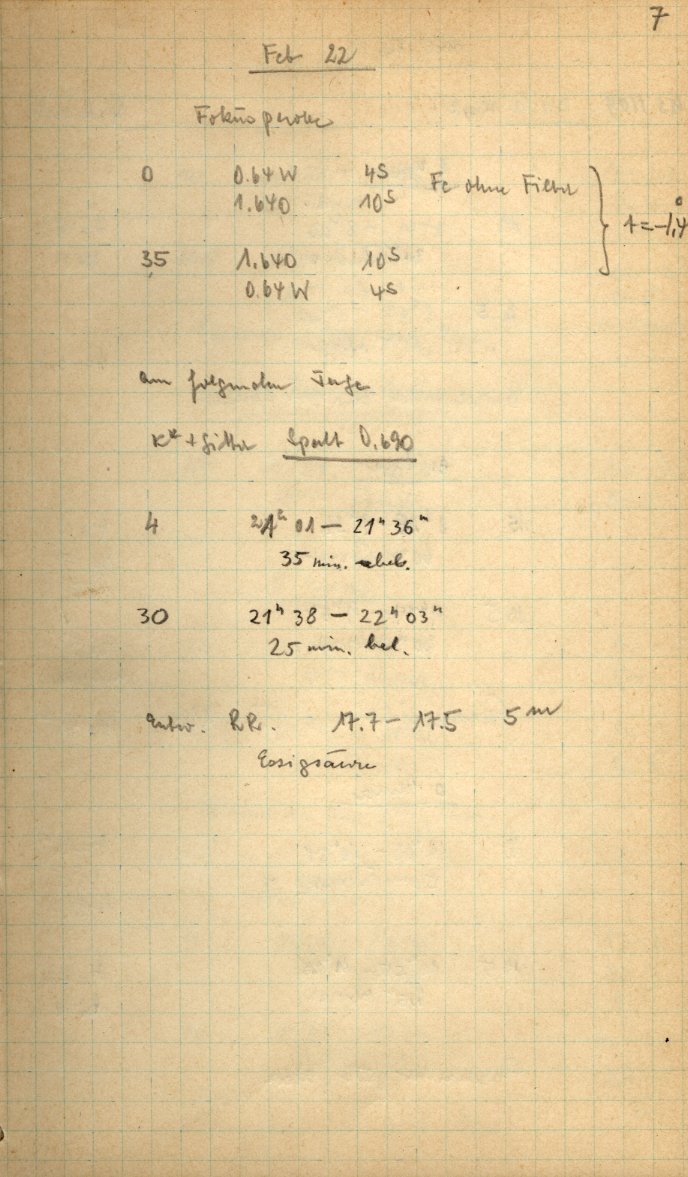 7
Feb 22
Fokusprobe
0 0.64W 4s Fe ohne Filter
1.640 10s t=-1,4°
35 1.640 10s
0.64W 4s
am folgenden Tage
K* + Gitter Spalt 0.690
4 21h 01 — 21h 36m
35 min. bel.
30 21h 38 — 22h 03m
25 min. bel.
Entw. 17.7 — 17.5 5m
Essigsäure